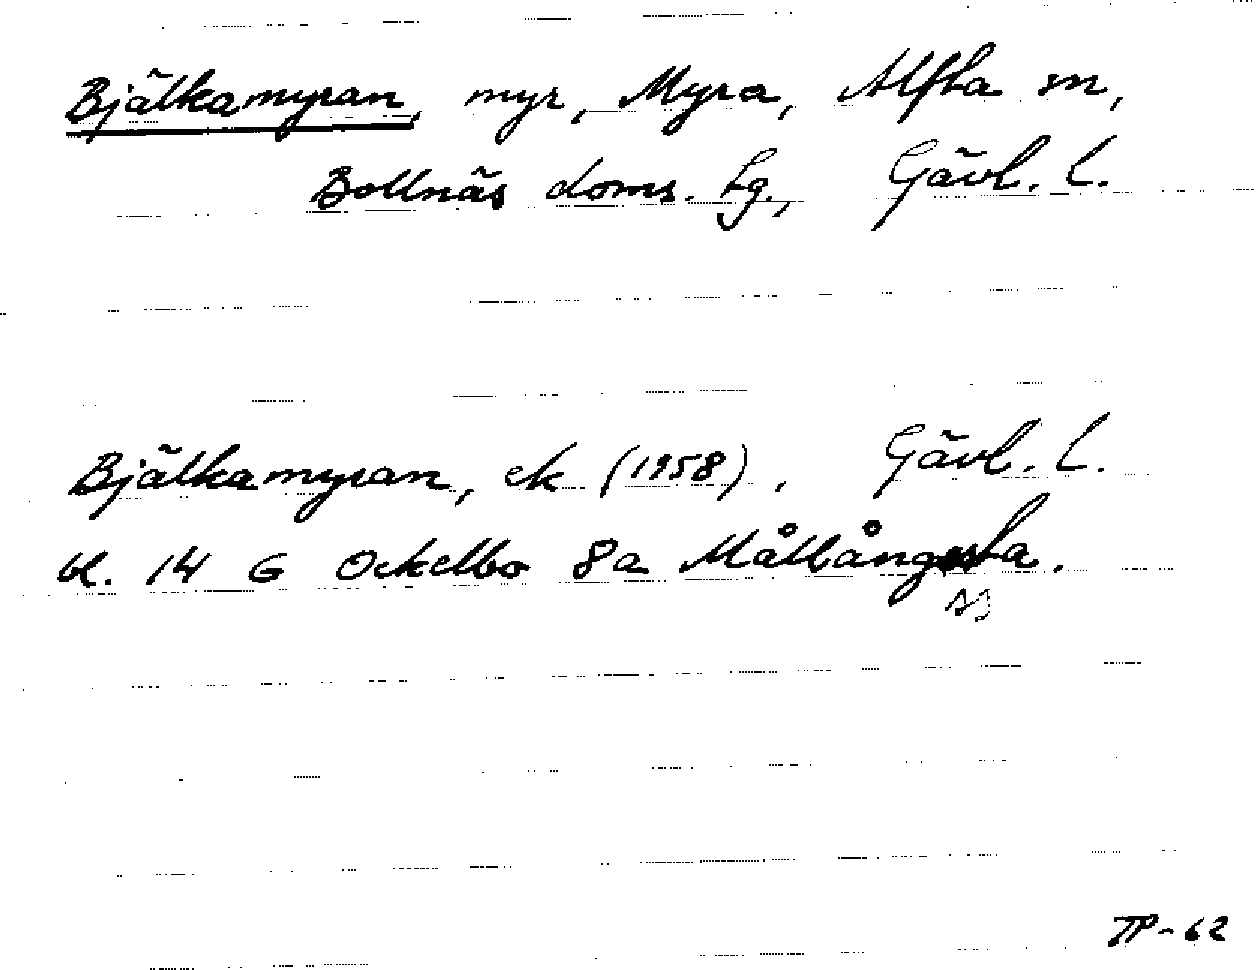 Bjälkamyran, myr, Myra, Alfta sn,
Bollnäs doms. hg., Gävl. l.
Bjälkamyran, ek (1958), Gävl. l.
bl. 14 G Ockelbo 8a Målbångsta.
TP-62